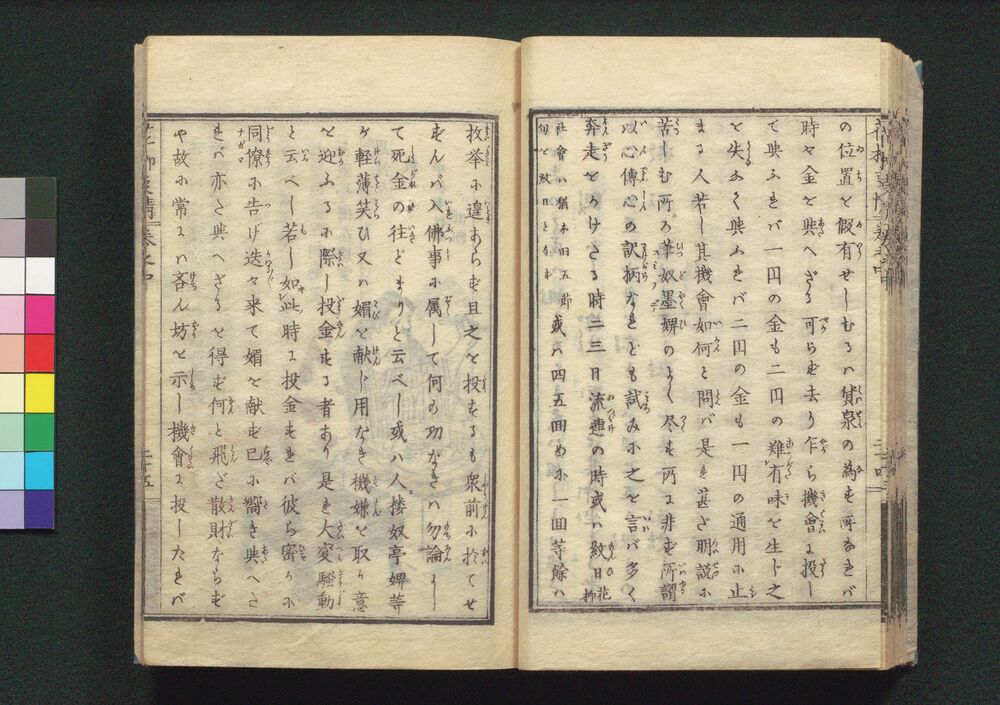 の位置を假有せしむるハ貨泉の為す所なれバ
時々金を與へざる可らず去り乍ら機會に投し
て與ふれバ一円の金も二円の難有味を生ド之
を失なく與ふれバ二円の金も一円の通用に止
まる人若し其機會如何と問バ是れ甚ざ明説に
苦しむ所の筆奴墨婢のよく尽す所に非ず所謂
以心傳心の訳柄なれども試みに之を言バ多く
奔走をかけさる時二三日流連の時或ハ紋日花柳
社會ハ猶本田五節句を紋日となす或ハ四五回めに一回等餘ハ
枚挙に遑あらず且之を投するも衆前に於てせ
ずんバ入佛事に属して何の功なきハ勿論にし
て死金の往どまりと云べし或ハ人。接奴亭婢等
が軽薄笑ひ又ハ媚を献じ用なき機嫌を取り意
を迎ふるに際し投金する者あり是れ大変騒動
と云べし若し如此時に投金すれバ彼ら密かに
同僚に告げ迭々来て媚を献ず已に嚮き與へさ
れバ亦た與へざるを得ず何と飛だ散財ならず
や故に常にハ吝ん坊を示し機會に投したれバ
二十四
二十五